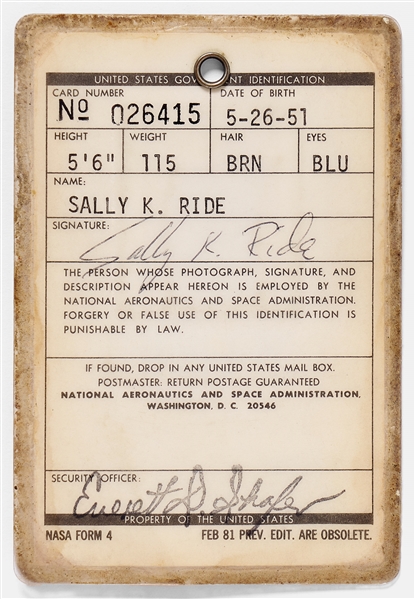 UNITED STATES GOVERNMENT IDENTIFICATION
CARD NUMBER DATE OF BIRTH
Nº 026415 5-26-51
HEIGHT WEIGHT HAIR EYES
5'6" 115 BRN BLU
NAME:
SALLY K. RIDE
SIGNATURE:
Sally K. Ride
THE PERSON WHOSE PHOTOGRAPH, SIGNATURE, AND
DESCRIPTION APPEAR HEREON IS EMPLOYED BY THE
NATIONAL AERONAUTICS AND SPACE ADMINISTRATION.
FORGERY OR FALSE USE OF THIS IDENTIFICATION IS
PUNISHABLE BY LAW.
IF FOUND, DROP IN ANY UNITED STATES MAIL BOX.
POSTMASTER: RETURN POSTAGE GUARANTEED
NATIONAL AERONAUTICS AND SPACE ADMINISTRATION.
WASHINGTON, D. C. 20546
SECURITY OFFICER:
Everett D. Shafer
PROPERTY OF THE UNITED STATES
NASA FORM 4 FEB 81 PREV. EDIT. ARE OBSOLETE.